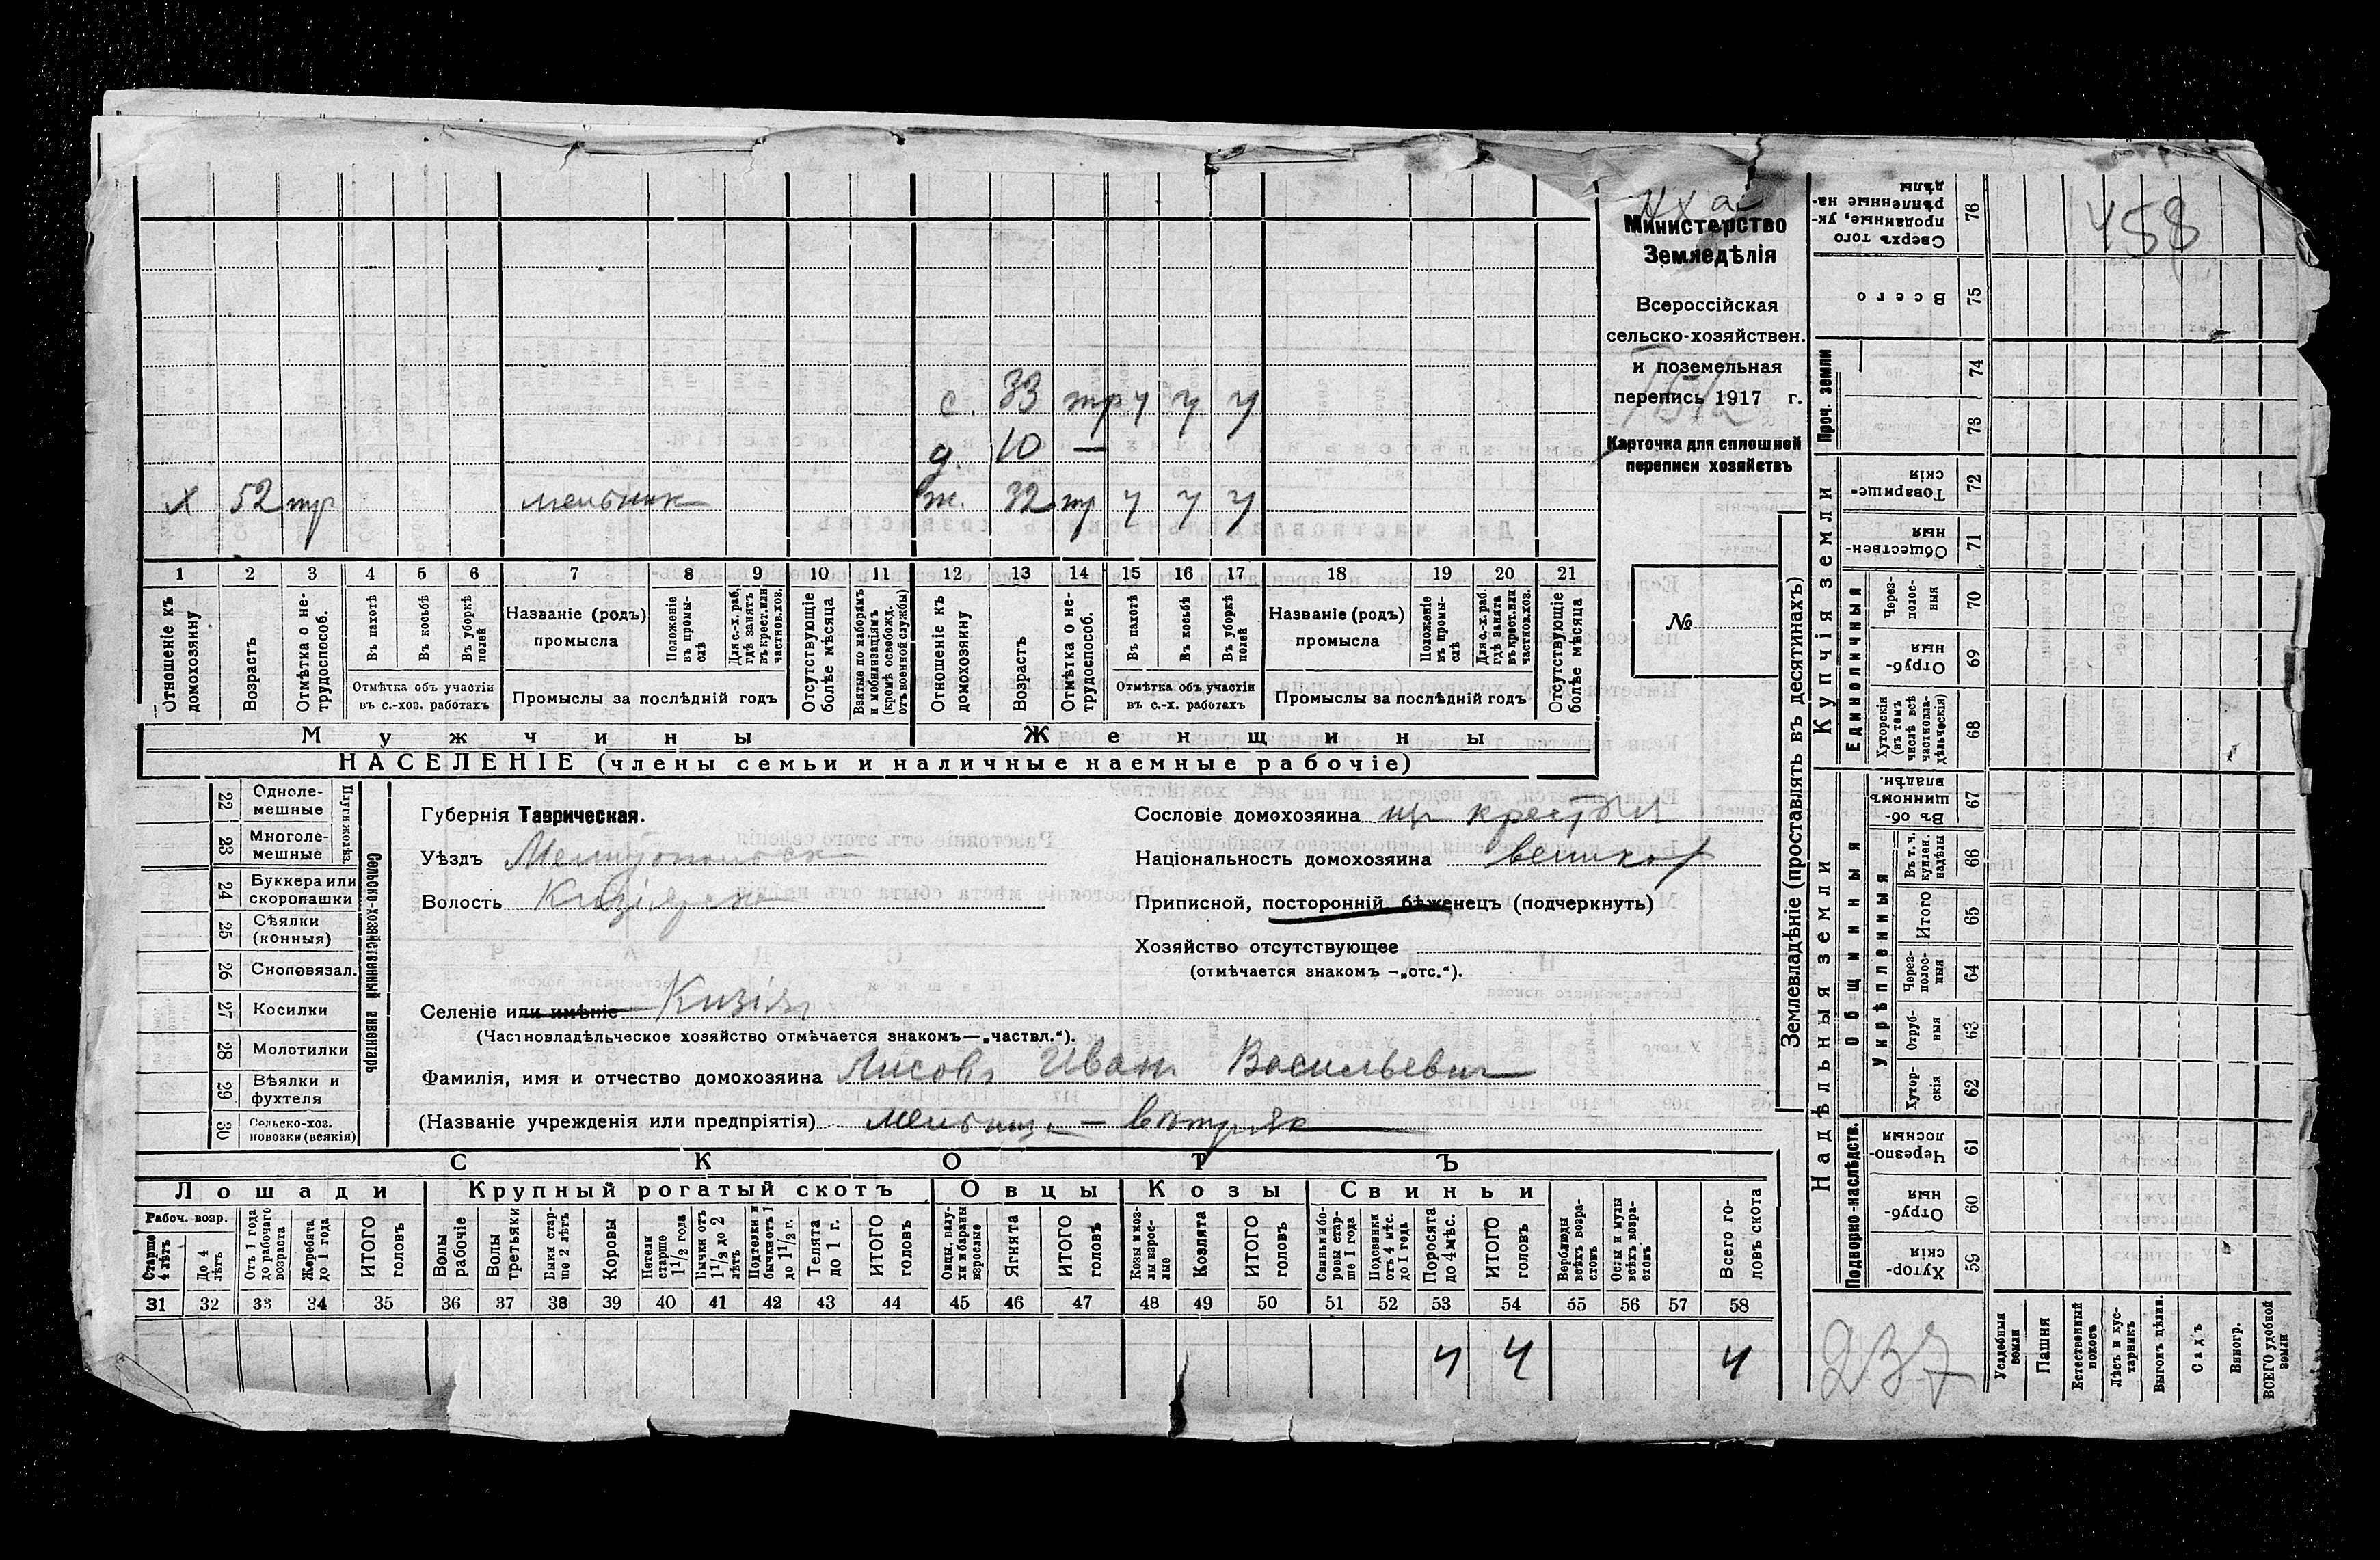 Министерство
Земледѣлія
Всероссійская
сельско-хозяйствен.
и поземельная
перепись 1917 г.
Карточка для сплошной
переписи хозяйствъ
№
458
с. 33 тр ч ч ч
д. 10 —
х 52 тр мельник ж. 32 тр ч ч ч
1 2 3 4 5 6 7 8 9 10 11 12 13 14 15 16 17 18 19 20 21
Отношеніе къ домохозяину
Возрастъ
Отмѣтка о нетрудоспособ.
Въ пахотѣ
Въ косьбѣ
Въ уборкѣ полей
Отмѣтка объ участіи въ с.-хоз. работахъ
Названіе (родъ) промысла
Положеніе въ промыслѣ
Для с.-х. раб, гдѣ занятъ въ крест. или частнов. хоз.
Промыслы за послѣдній годъ
Отсутствующіе болѣе мѣсяца
Взятые по наборамъ и мобилизаціямъ (кромѣ освобожд. отъ военной службы)
Отношеніе къ домохозяину
Возрастъ
Отмѣтка о нетрудоспособ.
Въ пахотѣ
Въ косьбѣ
Въ уборкѣ полей
Отмѣтка объ участіи въ с.-х. работахъ
Названіе (родъ) промысла
Положеніе въ промыслѣ
Для с.-х. раб. гдѣ занята въ крест. или частнов. хоз.
Промыслы за послѣдній годъ
Отсутствующіе болѣе мѣсяца
Мужчины Женщины
НАСЕЛЕНІЕ (члены семьи и наличные наемные рабочіе)
22 Однолемешные
23 Многолемешные
24 Буккера или скоропашки
25 Сѣялки (конныя)
26 Сноповязал.
27 Косилки
28 Молотилки
29 Вѣялки и фухтеля
30 Сельско-хоз. повозки (всякія)
Сельско-хозяйственный инвентарь
Губернія Таврическая.
Уѣздъ Мелитопольск
Волость Кизіярска
Сословіе домохозяина крест
Національность домохозяина великор
Приписной, посторонній, бѣженецъ (подчеркнуть)
Хозяйство отсутствующее
(отмѣчается знакомъ —„отс.“).
Селеніе или имѣніе Кизіяр
(Частновладѣльческое хозяйство отмѣчается знакомъ—„частвл.“).
Фамилія, имя и отчество домохозяина Лисовъ Иванъ Васильевич
(Названіе учрежденія или предпріятія) мельница — вѣтряк
СКОТЪ
Лошади Крупный рогатый скотъ Овцы Козы Свиньи
Рабоч. возр.
Старше 4 лѣтъ
До 4 лѣтъ
Отъ 1 года до рабочаго возраста
Жеребята до 1 года
ИТОГО головъ
Волы рабочіе
Волы третьяки
Быки старше 2 лѣтъ
Коровы
Нетели старше 1 1/2 года
Бычки отъ 1 1/2 до 2 лѣтъ
Подтелки и бычки отъ 1 до 1 1/2 г.
Телята до 1 г.
ИТОГО головъ
Овцы, валухи и бараны взрослые
Ягнята
ИТОГО головъ
Козы и козлы взрослые
Козлята
ИТОГО головъ
Свиньи и боровы старше 1 года
Подсвинки отъ 4 мѣс. до 1 года
Поросята до 4 мѣс.
ИТОГО головъ
Верблюды всѣхъ возрастовъ
Ослы и мулы всѣхъ возрастовъ
Всего головъ скота
31 32 33 34 35 36 37 38 39 40 41 42 43 44 45 46 47 48 49 50 51 52 53 54 55 56 57 58
4 4 4
Землевладѣніе (проставлять въ десятинахъ)
Надѣльныя земли Купчія земли Проч. земли
Подворно-наслѣдств.
Общинныя
Укрѣпленныя
Единоличныя
Сверхъ того проданные, укрѣпленные надѣлы 76
Всего 75
74
73
Товарищескія 72
Общественныя 71
Черезполосныя 70
Отрубныя 69
Хуторскія (въ томъ числѣ всѣ частновладѣльческія) 68
Въ общинномъ владѣн. 67
Въ т. ч. куплен. надѣлы 66
Итого 65
Черезполосныя 64
Отрубныя 63
Хуторскія 62
Черезполосныя 61
Отрубныя 60
Хуторскія 59
237
Усадебныя земли
Пашня
Естественный покосъ
Лѣсъ и кустарникъ
Выгонъ цѣлин.
Садъ
Виногр.
ВСЕГО удобной земли